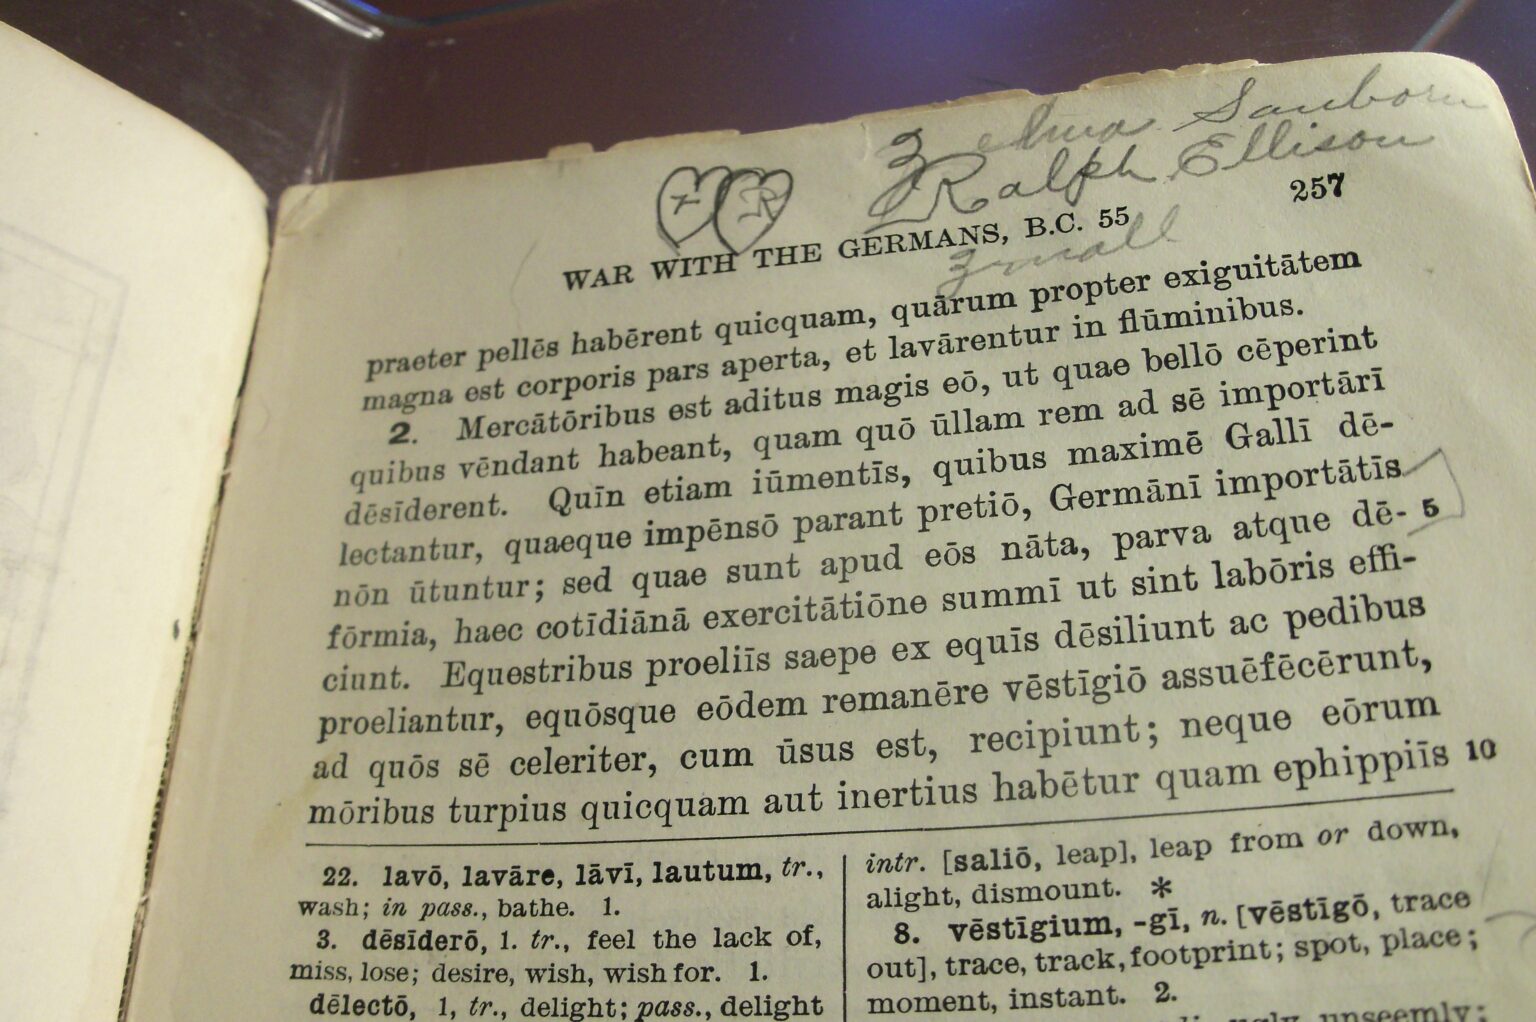 Zelma Sanborn
Ralph Ellison
R
257
WAR WITH THE GERMANS, B.C. 55
praeter pellēs habērent quicquam, quārum propter exiguitātem
magna est corporis pars aperta, et lavārentur in flūminibus.
2. Mercātōribus est aditus magis eō, ut quae bellō cēperint
quibus vēndant habeant, quam quō ūllam rem ad sē importārī
dēsīderent. Quīn etiam iūmentīs, quibus maximē Gallī dē-
lectantur, quaeque impēnsō parant pretiō, Germānī importātīs
nōn ūtuntur; sed quae sunt apud eōs nāta, parva atque dē- 5
fōrmia, haec cotīdiānā exercitātiōne summī ut sint labōris effi-
ciunt. Equestribus proeliīs saepe ex equīs dēsiliunt ac pedibus
proeliantur, equōsque eōdem remanēre vēstīgiō assuēfēcērunt,
ad quōs sē celeriter, cum ūsus est, recipiunt; neque eōrum
mōribus turpius quicquam aut inertius habētur quam ephippiīs 10
22. lavō, lavāre, lāvī, lautum, tr.,
wash; in pass., bathe. 1.
3. dēsīderō, 1. tr., feel the lack of,
miss, lose; desire, wish, wish for. 1.
dēlectō, 1, tr., delight; pass., delight
intr. [saliō, leap], leap from or down,
alight, dismount. *
8. vēstīgium, -gī, n. [vēstīgō, trace
out], trace, track, footprint; spot, place;
moment, instant. 2.
unseemly;